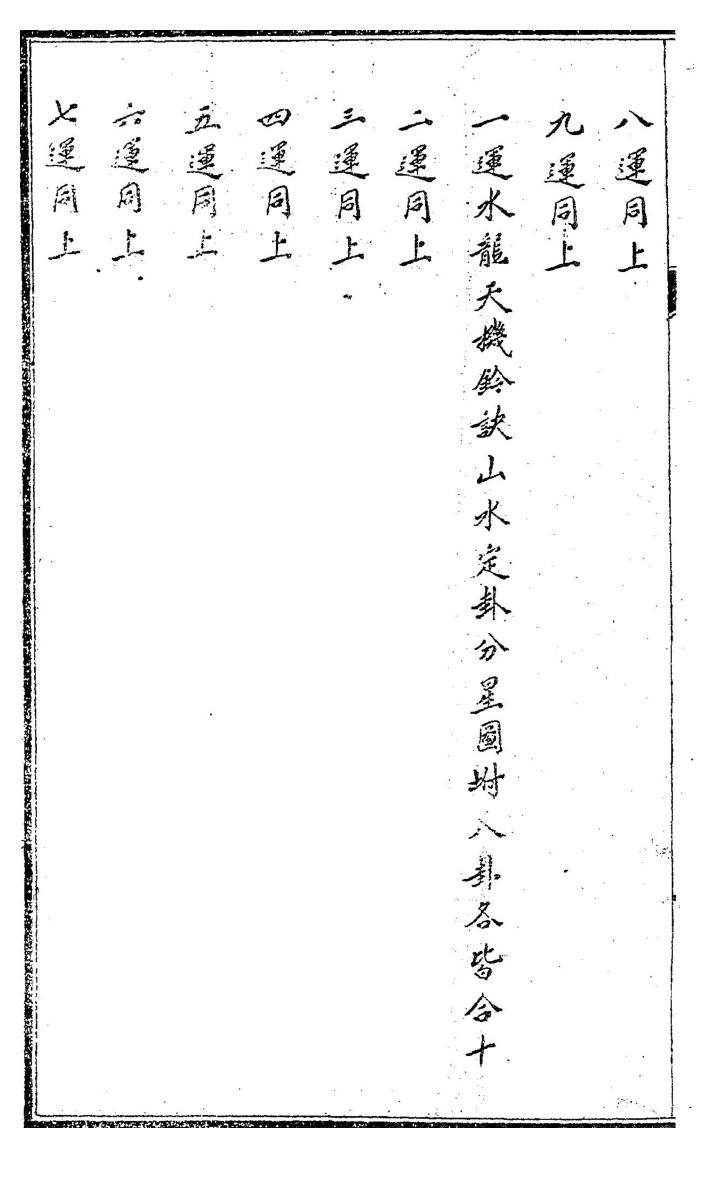 八運同上
九運同上
一運水龍天機鈐訣山水定卦分星圖坿八卦各皆合十
二運同上
三運同上
四運同上
五運同上
六運同上
七運同上